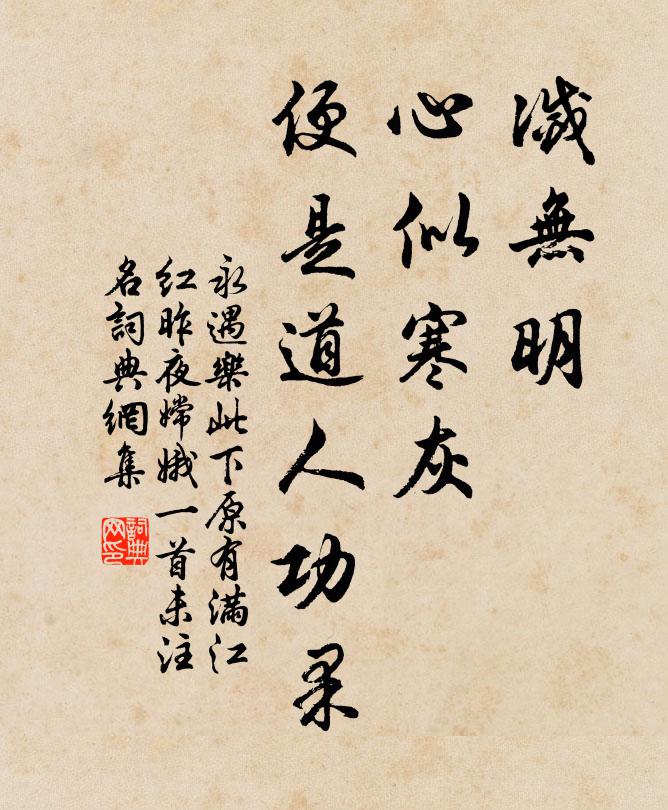 滅無明
心似寒灰
便是道人功果
永遇樂此下原有滿江
紅昨夜嫦娥一首未注
名詞典網集
詞典网印